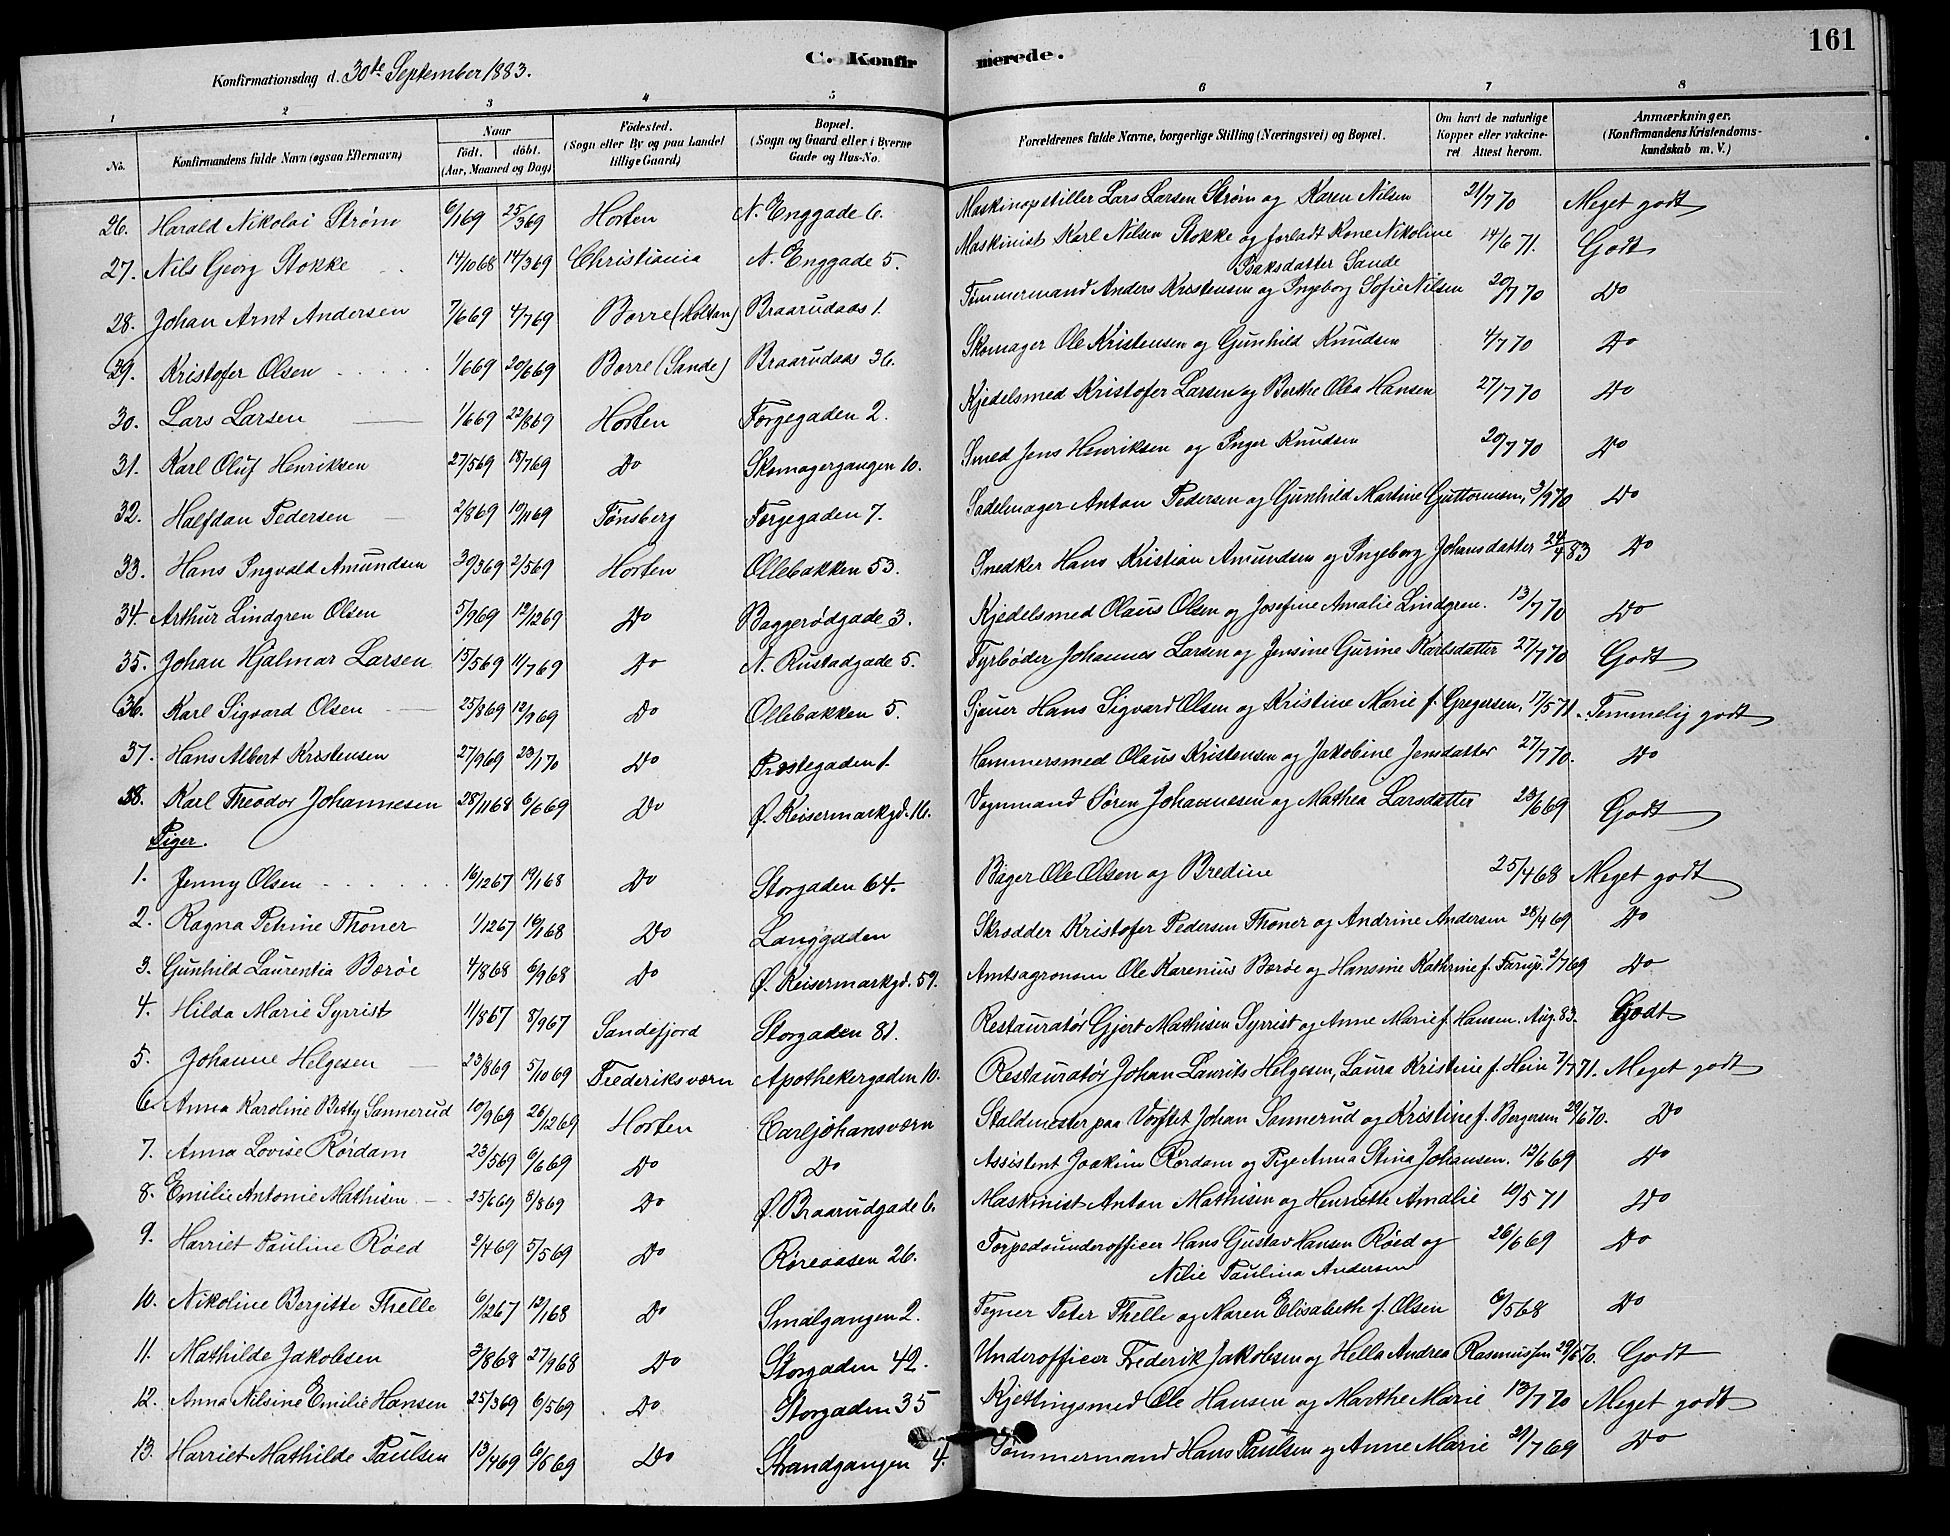 161
Konfirmationsdag d. 30te September 1883.
C. Konfirmerede.
1 2 3 4 5 6 7 8
No. Konfirmandens fulde Navn (ogsaa Efternavn) Naar født. døbt. (Aar, Maaned og Dag) Fødested. (Sogn eller By og paa Landet tillige Gaard) Bopæl. (Sogn og Gaard eller i Byerne Gade og Hus-No. Forældrenes fulde Navne, borgerlige Stilling (Næringsvei) og Bopæl. Om havt de naturlige Kopper eller vakcineret Attest herom. Anmærkninger. (Konfirmandens Kristendomskundskab m. V.)
26. Harald Nikolai Strøm 6/1 69 25/3 69 Horten N. Enggade 6. Maskinopstiller Lars Larsen Strøm og Karen Nilsen 21/7 70 Meget godt
27. Nils Georg Stokke 14/10 68 14/3 69 Christiania N. Enggade 5. Maskinist Karl Nilsen Stokke og forladt Kone Nikoline 14/6 71. Godt
Isaksdatter Sande
28. Johan Arnt Andersen 7/6 69 4/7 69 Borre (Holtan) Braarudaas 1. Tømmermand Anders Kristensen og Ingeborg Sofie Nilsen 20/7 70 Do
29. Kristofer Olsen 1/6 69 20/6 69 Borre (Sande) Braarudaas 36. Skomager Ole Kristensen og Gunhild Knudsen 4/7 70 Do
30. Lars Larsen 1/6 69 22/8 69 Horten Forgegaden 2. Kjedelsmed Kristofer Larsen og Berthe Olea Hansen 27/7 70 Do
31. Karl Oluf Henriksen 27/5 69 18/7 69 Do Skomagergangen 10. Smed Jens Henriksen og Inger Knudsen 20/7 70 Do
32. Halfdan Pedersen 2/8 69 Tønsberg Forgegaden 7. Sadelmager Anton Pedersen og Gunhild Martine Guttormsen, 3/9 70 Do
33. Hans Ingvald Amundsen 30/3 69 2/5 69 Horten Ollebakken 53. Snedker Hans Kristian Amundsen og Ingeborg Johansdatter 24/4 83 Do
34. Arthur Lindgren Olsen 5/9 69 12/12 69 Do Baggerødgade 3. Kjedelsmed Olaus Olsen og Josefine Amalie Lindgren. 13/7 70 Do
35. Johan Hjalmar Larsen 15/5 69 11/7 69 Do N. Rustadgade 5. Fyrbøder Johannes Larsen og Jensine Gurine Karlsdatter 27/7 70 Godt
36. Karl Sigvard Olsen 25/8 69 12/9 69 Do Ollebakken 5. Sjauer Hans Sigvard Olsen og Kristine Marie f. Gregersen. 17/5 71. Temmelig godt
37. Hans Albert Kristensen 27/9 69 23/1 70 Do Prestegaden 1. Hammersmed Olaus Kristensen og Jakobine Jensdatter 27/7 70. Do
38. Karl Theodor Johannesen 28/11 68 6/6 69 Do Ø. Keisermarkgd. 16. Vognmand Søren Johannesen og Mathea Larsdatter 23/6 69 Godt
Piger.
1. Jenny Olsen 16/12 67 19/1 68 Do Storgaden 64. Bager Ole Olsen og Bredine 25/4 68 Meget godt
2. Ragna Petrine Thoner 1/12 67 19/1 68 Do Langgaden Skrædder Kristofer Pedersen Thoner og Andrine Andersen 28/4 69 Do
3. Gunhild Laurentia Bærøe 4/8 68 6/9 68 Do Ø. Keisermarkgd. 59. Amtsagronom Ole Karenius Bærøe og Hansine Kathrine f. Farup. 2/7 69 Do
4. Hilda Marie Syrrist 11/8 67 8/9 67 Sandefjord Storgaden 81. Restauratør Gjert Mathisen Syrrist og Anne Marie f. Hansen. Aug. 83. Godt
5. Johanne Helgesen 23/8 69 5/10 69 Frederiksværn Apothekergaden 10. Restauratør Johan Laurits Helgesen, Laura Kristine f. Hein 7/7 71. Meget godt
6. Anna Karoline Betty Sannerud 10/9 69 26/12 69 Horten Carljohansværn Staldmester paa Værftet Johan Sannerud og Kristine f. Bergersen 29/6 70. Do
7. Anna Lovise Rørdam 23/5 69 6/6 69 Do Do Assistent Joakim Rørdam og Pige Anna Stina Johansen. 12/6 69 Do
8. Emilie Antonie Mathisen 25/6 69 8/8 69 Do Ø. Braarudgade 6. Maskinist Anton Mathisen og Henriette Amalie 10/5 71 Do
9. Harriet Pauline Røed 2/4 69 5/5 69 Do Røreaasen 26. Torpedounderofficer Hans Gustav Hansen Røed og 26/6 69 Do
Nilie Paulina Andersen
10. Nikoline Bergitte Thelle 6/12 67 12/1 68 Do Smalgangen 2. Tegner Peter Thelle og Maren Elisabeth f. Olsen 6/5 68 Do
11. Mathilde Jakobsen 3/8 68 27/9 68 Do Storgaden 42. Underofficer Frederik Jakobsen og Hella Andrea Rasmussen 29/6 70. Godt
12. Anna Nilsine Emilie Hansen 25/3 69 6/5 69 Do Storgaden 35 Kjettingsmed Ole Hansen og Marthe Marie 13/7 70 Meget godt
13. Harriet Mathilde Paulsen 13/4 69 6/5 69 Do Strandgangen 4. Tømmermand Hans Paulsen og Anne Marie 21/7 69 Do